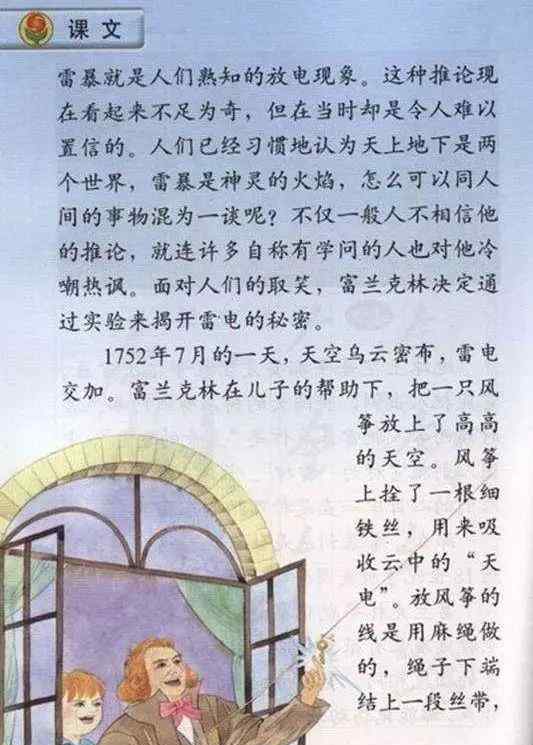 课文
雷暴就是人们熟知的放电现象。这种推论现
在看起来不足为奇，但在当时却是令人难以
置信的。人们已经习惯地认为天上地下是两
个世界，雷暴是神灵的火焰，怎么可以同人
间的事物混为一谈呢？不仅一般人不相信他
的推论，就连许多自称有学问的人也对他冷
嘲热讽。面对人们的取笑，富兰克林决定通
过实验来揭开雷电的秘密。
1752年7月的一天，天空乌云密布，雷电
交加。富兰克林在儿子的帮助下，把一只风
筝放上了高高
的天空。风筝
上拴了一根细
铁丝，用来吸
收云中的“天
电”。放风筝的
线是用麻绳做
的，绳子下端
结上一段丝带，